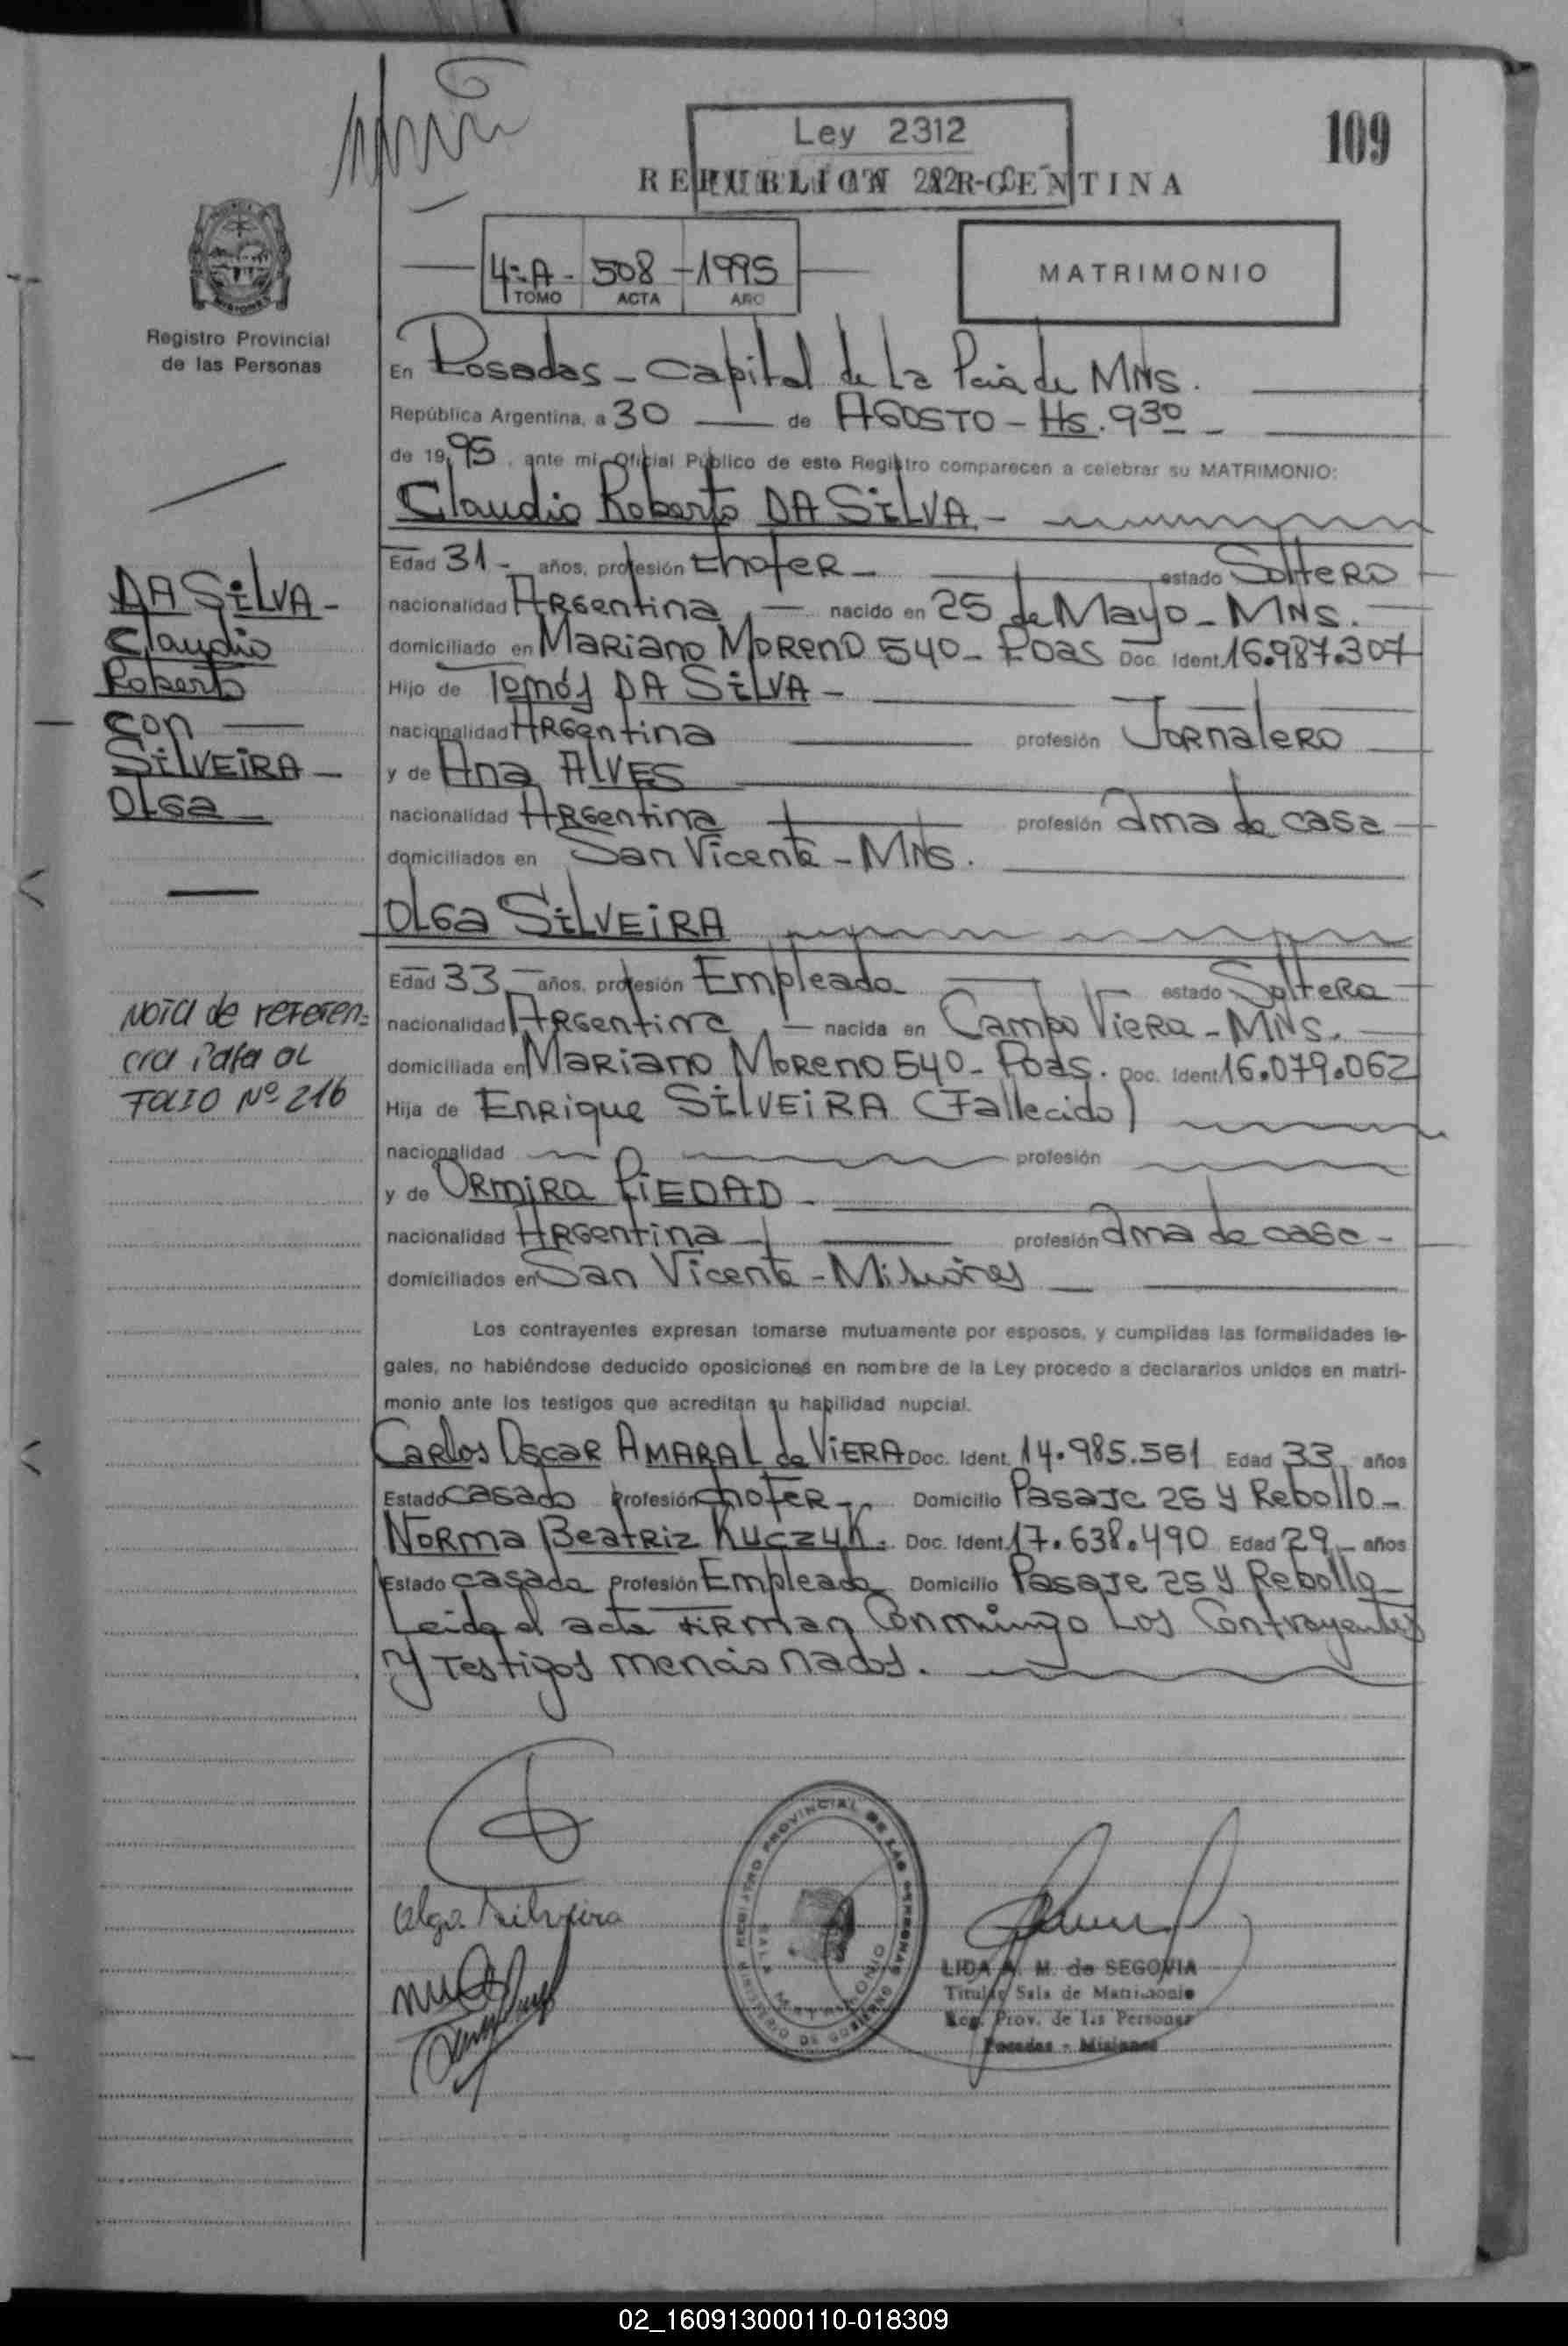 109
Ley 2312
REPUBLICA ARGENTINA
4º A - 508 - 1995
TOMO ACTA AÑO
MATRIMONIO
Registro Provincial
de las Personas
En Posadas - Capital de La Pcia de MNS.
República Argentina, a 30 de AGOSTO - Hs. 9 30
de 1995, ante mi, Oficial Público de este Registro comparecen a celebrar su MATRIMONIO:
Claudio Roberto DA SILVA -
Edad 31 - años, profesión chofer - estado Soltero
nacionalidad Argentina, nacido en 25 de Mayo - MNS.
domiciliado en Mariano Moreno 540 - Poas Doc. Ident. 16.987.307
Hijo de Tomás DA SILVA -
nacionalidad Argentina profesión Jornalero
y de Ana ALVES
nacionalidad Argentina profesión ama de casa
domiciliados en San Vicente - MNS.
DA SILVA -
Claudio
Roberto
con
SILVEIRA -
OLGA
OLGA SILVEIRA
Edad 33 - años, profesión Empleada estado Soltera
nacionalidad Argentina, nacida en Campo Viera - MNS.
domiciliada en Mariano Moreno 540 - Poas. Doc. Ident. 16.079.062
Hija de Enrique SILVEIRA (Fallecido)
nacionalidad profesión
y de Ormira PIEDAD -
nacionalidad Argentina - profesión ama de casa -
domiciliados en San Vicente - Misiones
Nota de referen=
cia pasa al
FOLIO Nº 216
Los contrayentes expresan tomarse mutuamente por esposos, y cumplidas las formalidades le-
gales, no habiéndose deducido oposiciones en nombre de la Ley procedo a declararlos unidos en matri-
monio ante los testigos que acreditan su habilidad nupcial.
Carlos Oscar AMARAL de VIERA Doc. Ident. 14.985.561 Edad 33 años
Estado casado Profesión chofer - Domicilio Pasaje 25 y Rebollo -
Norma Beatriz KUCZYK. Doc. Ident. 17.638.490 Edad 29 - años
Estado casada Profesión Empleada Domicilio Pasaje 25 y Rebollo
Leida el acta firman Conmingo Los Contrayentes
y Testigos mencionados.
Olga Silveira
REGISTRO PROVINCIAL DE LAS PERSONAS
MINISTERIO DE GOBIERNO
SALA MATRIMONIO
LIDA A. M. de SEGOVIA
Titular Sala de Matrimonio
Reg. Prov. de las Personas
Posadas - Misiones
02_160913000110-018309